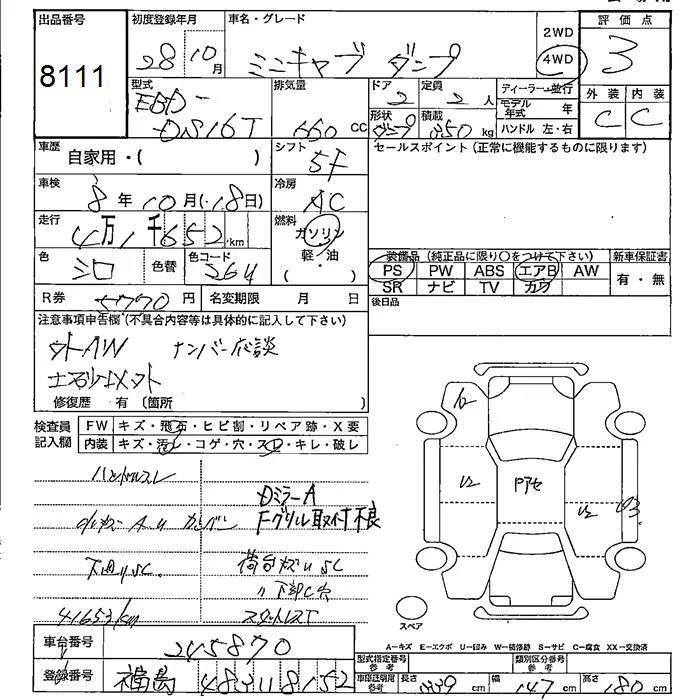 出品番号
8111
初度登録年月
28 10月
車名・グレード
ミニキャブ ダンプ
2WD
4WD
評価点
3
外装 内装
C C
型式
EBD-
DS16T
排気量
660 cc
ドア 2
定員 2人
形状 ダンプ
積載 350 kg
ディーラー・並行
モデル年式 年
ハンドル 左・右
車歴
自家用・( )
シフト
5F
セールスポイント(正常に機能するものに限ります)
車検
8年10月(・18日)
冷房
AC
走行
4万1千652km
燃料
ガソリン
軽・油
( )
色
シロ
色替
色コード
264
装備品(純正品に限り○をつけて下さい)
PS PW ABS エアB AW
SR ナビ TV カワ
新車保証書
有・無
R券 5770円
名変期限 月 日
後日品
注意事項申告欄(不具合内容等は具体的に記入して下さい)
ナンバー応談
修復歴 有(箇所 )
検査員記入欄
FW キズ・飛石・ヒビ割・リペア跡・X要
内装 キズ・汚れ・コゲ・穴・スレ・キレ・破レ
ハンドルスレ
DミラーA
Fグリル取付不良
下廻りSC
荷台キズU SC
〃下部C穴
41653km
U2
U2
スペア
A-キズ E-エクボ U-凹み W-補修跡 S-サビ C-腐食 XX-交換済
車台番号
245870
登録番号
福島 483 1 8152
型式指定番号 参考
類別区分番号 参考
車検証明尾 参考
長さ 339 cm
幅 147 cm
高さ 180 cm